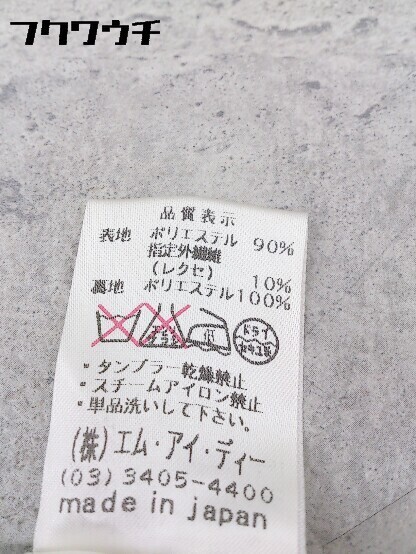 フクワウチ
品質表示
表地 ポリエステル 90%
指定外繊維
(レクセ) 10%
裏地 ポリエステル100%
低 ドライ
セキユ系
・タンブラー乾燥禁止
・スチームアイロン禁止
・単品洗いして下さい。
(株)エム・アイ・ディー
(03) 3405-4400
made in japan